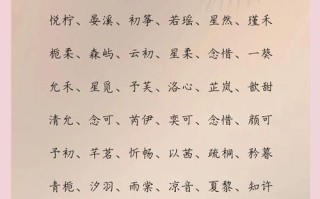 悦柠、晏溪、初筝、若瑶、星然、瑾禾
栀柔、森屿、云初、星柔、念惜、一葵
允禾、星觅、予芙、洛心、芷岚、歆甜
清允、念可、芮伊、奕可、念惜、颜可
予初、芊茗、忻畅、以茜、疏桐、矜暮
青栀、汐羽、雨棠、凉音、夏黎、知许